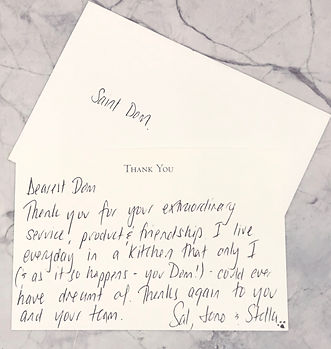 Saint Dom.
THANK YOU
Dearest Dom
Thank you for your extraordinary
service, product & friendship. I live
everyday in a kitchen that only I
(& as it so happens - you Dom!) - could ever
have dreamt of. Thanks again to you
and your team.
Sal, Jono & Stella